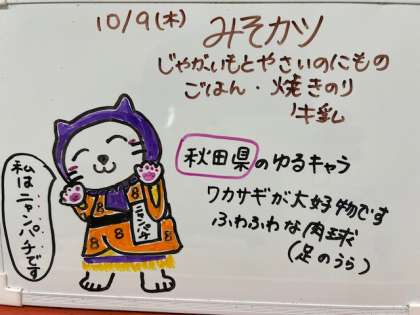 10/9(木) みそカツ
じゃがいもとやさいのにもの
ごはん・焼きのり
牛乳
秋田県のゆるキャラ
ワカサギが大好物です
ふわふわな肉球
(足のうら)
私はニャンパチです
ニャンパチ
8 8 8
8 8